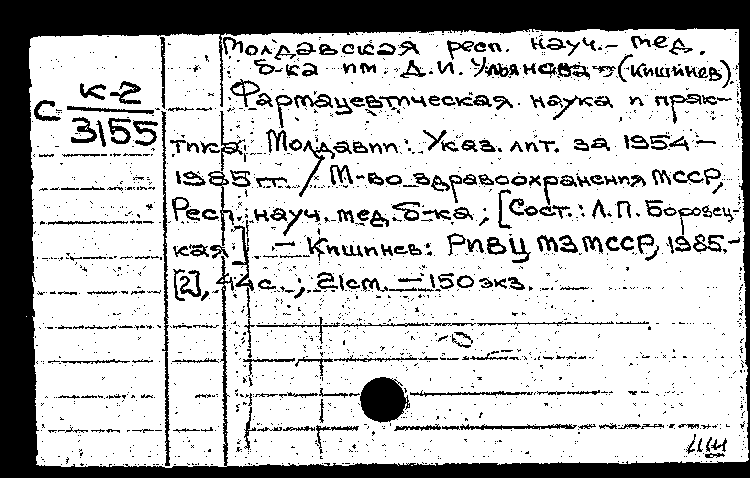 Молдавская респ. науч.- мед.
б-ка им. Д.И. Ульянова (Кишинев)
С К-2
3155
Фармацевтическая наука и прак-
тика Молдавии: Указ. лит. за 1954 -
1985 гг. / М-во здравоохранения МССР,
Респ. науч. мед. б-ка; [Сост.: Л.П. Боровец-
кая]. - Кишинев: РИВЦ МЗ МССР, 1985. -
[2], 44 с.; 21 см. - 150 экз.